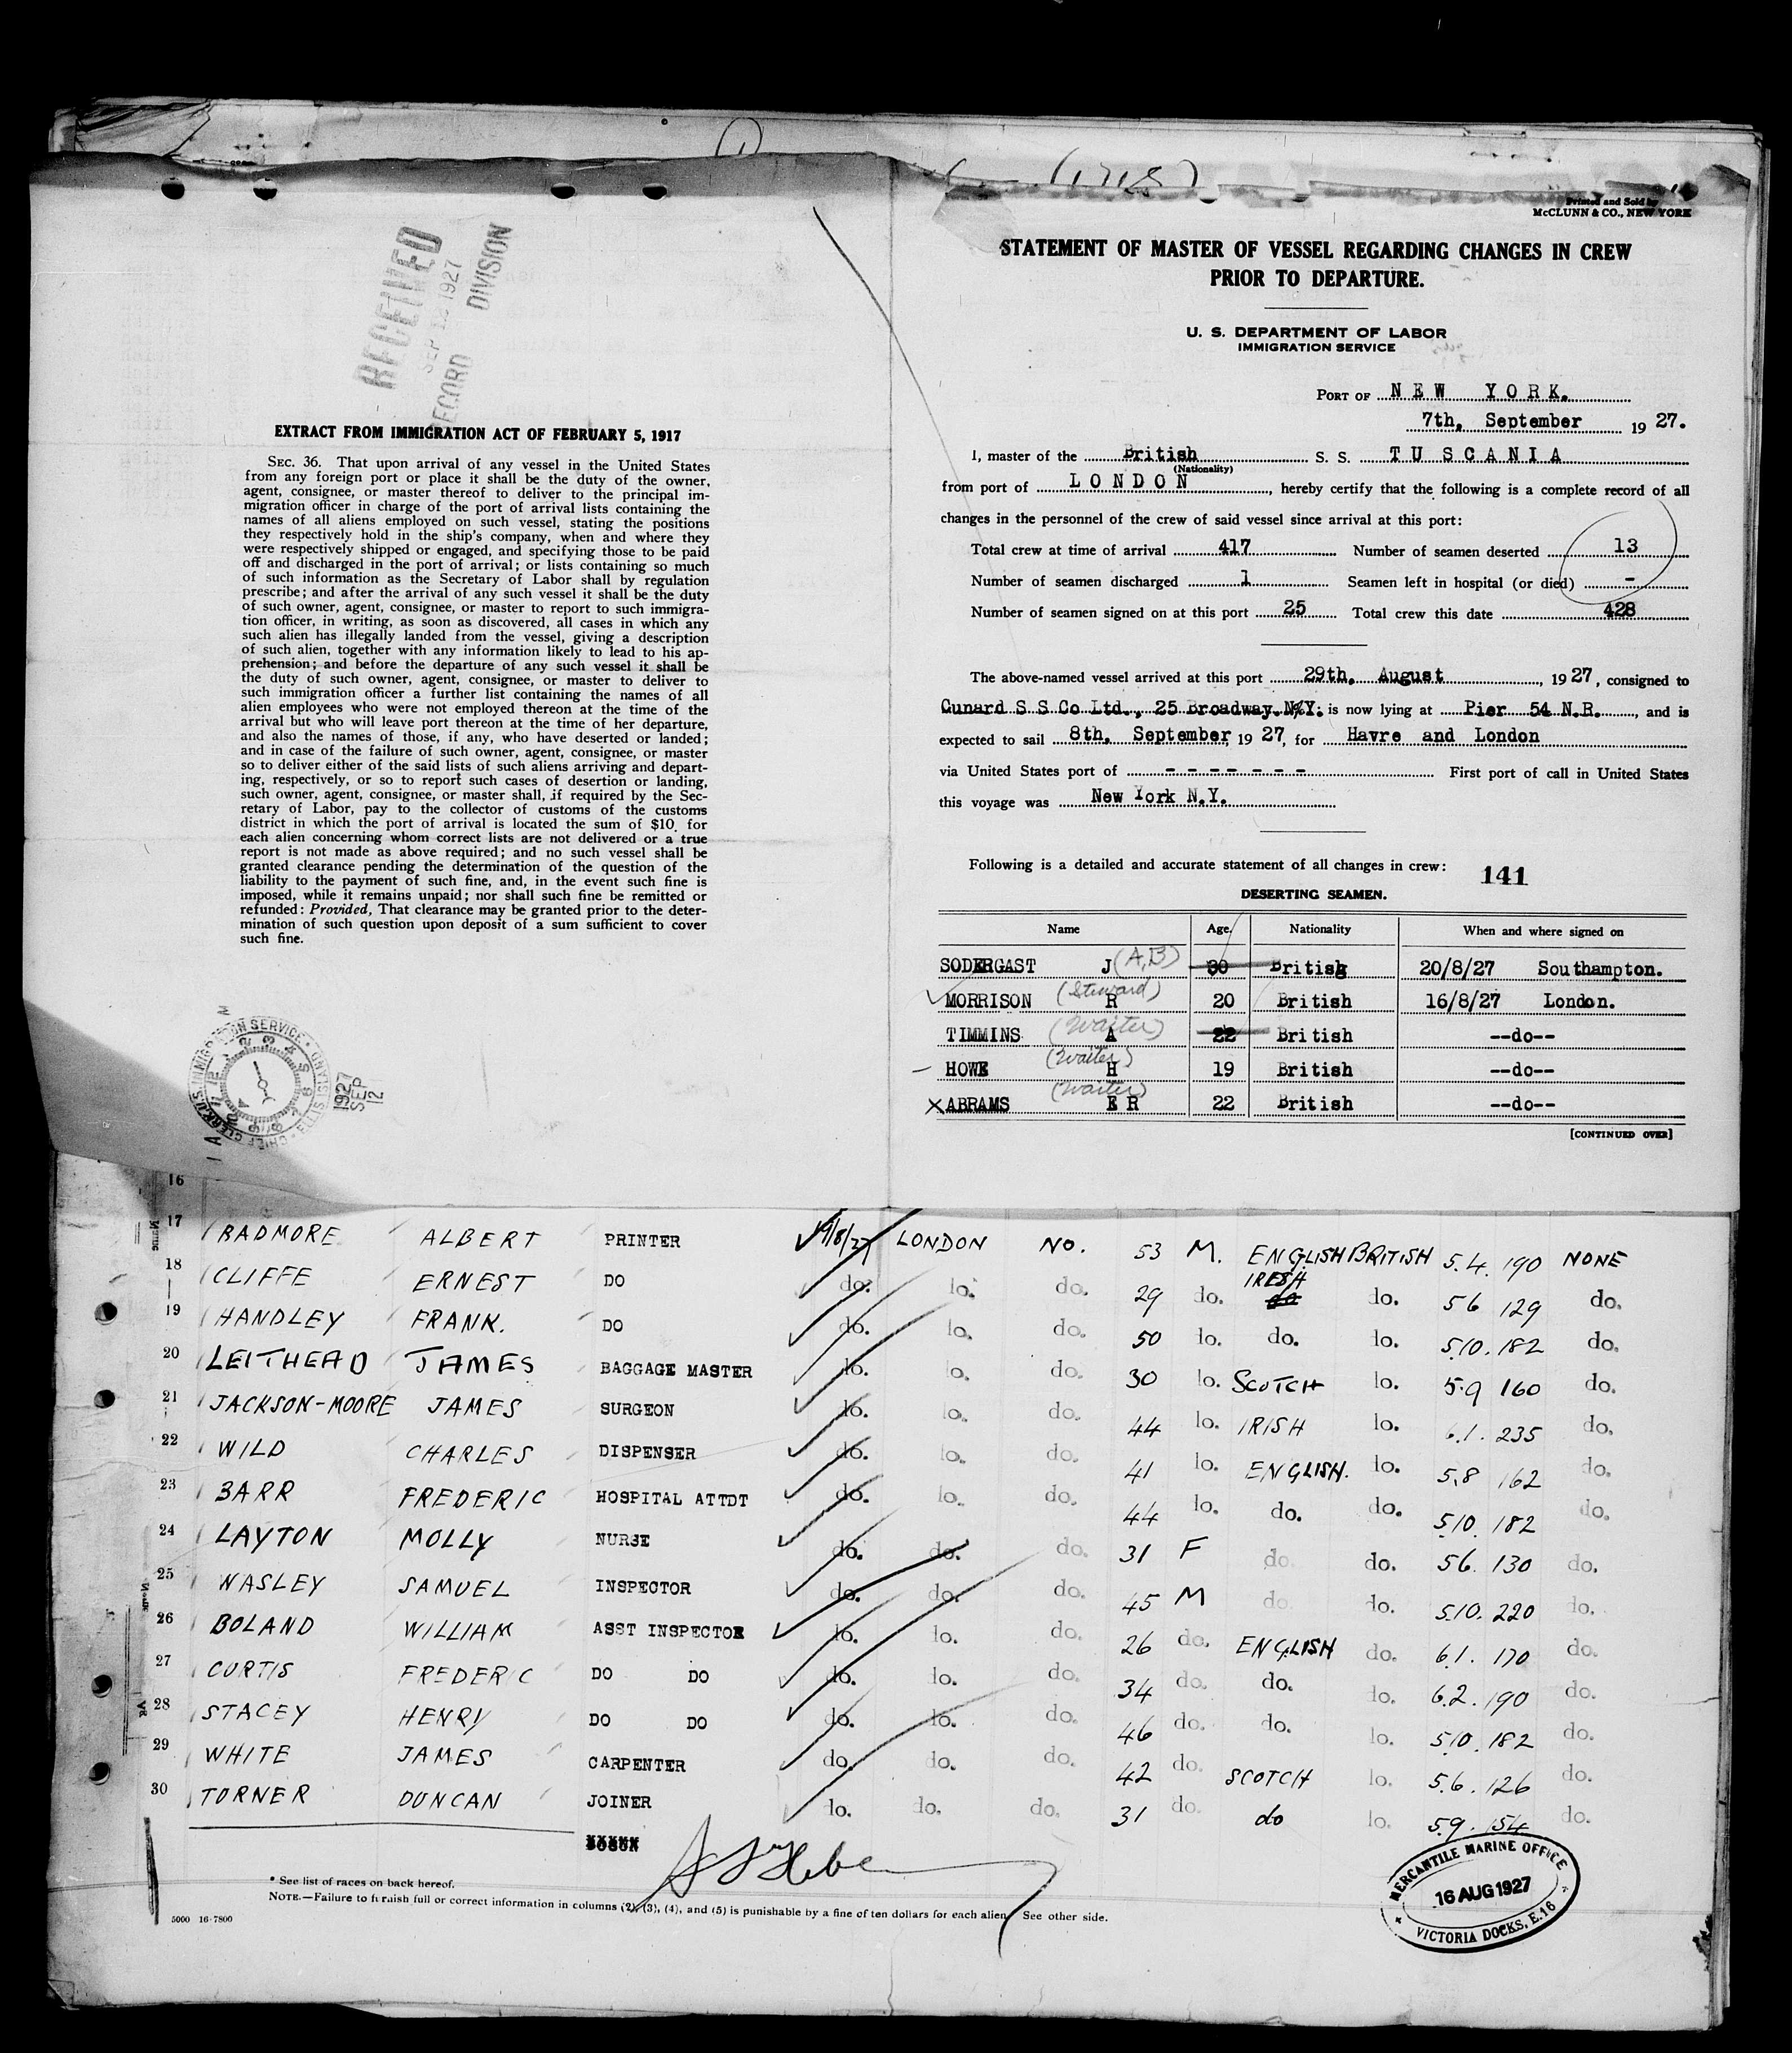 RECEIVED
SEP 12 1927
RECORD DIVISION
EXTRACT FROM IMMIGRATION ACT OF FEBRUARY 5, 1917
SEC. 36. That upon arrival of any vessel in the United States
from any foreign port or place it shall be the duty of the owner,
agent, consignee, or master thereof to deliver to the principal im-
migration officer in charge of the port of arrival lists containing the
names of all aliens employed on such vessel, stating the positions
they respectively hold in the ship's company, when and where they
were respectively shipped or engaged, and specifying those to be paid
off and discharged in the port of arrival; or lists containing so much
of such information as the Secretary of Labor shall by regulation
prescribe; and after the arrival of any such vessel it shall be the duty
of such owner, agent, consignee, or master to report to such immigra-
tion officer, in writing, as soon as discovered, all cases in which any
such alien has illegally landed from the vessel, giving a description
of such alien, together with any information likely to lead to his ap-
prehension; and before the departure of any such vessel it shall be
the duty of such owner, agent, consignee, or master to deliver to
such immigration officer a further list containing the names of all
alien employees who were not employed thereon at the time of the
arrival but who will leave port thereon at the time of her departure,
and also the names of those, if any, who have deserted or landed;
and in case of the failure of such owner, agent, consignee, or master
so to deliver either of the said lists of such aliens arriving and depart-
ing, respectively, or so to report such cases of desertion or landing,
such owner, agent, consignee, or master shall, if required by the Sec-
retary of Labor, pay to the collector of customs of the customs
district in which the port of arrival is located the sum of $10 for
each alien concerning whom correct lists are not delivered or a true
report is not made as above required; and no such vessel shall be
granted clearance pending the determination of the question of the
liability to the payment of such fine, and, in the event such fine is
imposed, while it remains unpaid; nor shall such fine be remitted or
refunded: Provided, That clearance may be granted prior to the deter-
mination of such question upon deposit of a sum sufficient to cover
such fine.
1927 SEP 12
Printed and Sold by
McCLUNN & CO., NEW YORK
STATEMENT OF MASTER OF VESSEL REGARDING CHANGES IN CREW
PRIOR TO DEPARTURE.
U. S. DEPARTMENT OF LABOR
IMMIGRATION SERVICE
PORT OF NEW YORK.
7th, September 1927.
I, master of the British S. S. TUSCANIA
(Nationality)
from port of LONDON, hereby certify that the following is a complete record of all
changes in the personnel of the crew of said vessel since arrival at this port:
Total crew at time of arrival 417 Number of seamen deserted 13
Number of seamen discharged 1 Seamen left in hospital (or died) -
Number of seamen signed on at this port 25 Total crew this date 428
The above-named vessel arrived at this port 29th, August, 1927, consigned to
Cunard S S Co Ltd., 25 Broadway. N.Y. is now lying at Pier 54 N.R., and is
expected to sail 8th, September, 1927, for Havre and London
via United States port of - - - - - - - First port of call in United States
this voyage was New York N.Y.
Following is a detailed and accurate statement of all changes in crew: 141
DESERTING SEAMEN.
Name Age. Nationality When and where signed on
SODERGAST J (A.B) 30 British 20/8/27 Southampton.
MORRISON (Steward) R 20 British 16/8/27 London.
TIMMINS (Waiter) A 22 British --do--
HOWE (Waiter) H 19 British --do--
X ABRAMS (Waiter) E R 22 British --do--
[CONTINUED OVER]
16
17 BADMORE ALBERT PRINTER 19/8/27 LONDON NO. 53 M. ENGLISH BRITISH 5.4. 190 NONE
18 CLIFFE ERNEST DO do. do. do. 29 do. IRISH do do. 5 6 129 do.
19 HANDLEY FRANK. DO do. do. do. 50 do. do. do. 5.10. 182 do.
20 LEITHEAD JAMES BAGGAGE MASTER do. do. do. 30 do. SCOTCH do. 5.9 160 do.
21 JACKSON-MOORE JAMES SURGEON do. do. do. 44 do. IRISH do. 6.1. 235 do.
22 WILD CHARLES DISPENSER do. do. do. 41 do. ENGLISH. do. 5.8 162 do.
23 BARR FREDERIC HOSPITAL ATTDT do. do. do. 44 do. do. do. 5.10. 182 do.
24 LAYTON MOLLY NURSE do. do. do. 31 F do. do. 5 6. 130 do.
25 WASLEY SAMUEL INSPECTOR do. do. do. 45 M do. do. 5.10. 220 do.
26 BOLAND WILLIAM ASST INSPECTOR do. do. do. 26 do. ENGLISH do. 6.1. 170 do.
27 CURTIS FREDERIC DO DO do. do. do. 34 do. do. do. 6.2. 190 do.
28 STACEY HENRY DO DO do. do. do. 46 do. do. do. 5.10. 182 do.
29 WHITE JAMES CARPENTER do. do. do. 42 do. SCOTCH do. 5.6. 126 do.
30 TORNER DUNCAN JOINER do. do. do. 31 do. do do. 5.9. 154 do.
* See list of races on back hereof.
NOTE.—Failure to furnish full or correct information in columns (2), (3), (4), and (5) is punishable by a fine of ten dollars for each alien. See other side.
5000 16-7800
MERCANTILE MARINE OFFICE
16 AUG 1927
VICTORIA DOCKS, E.16